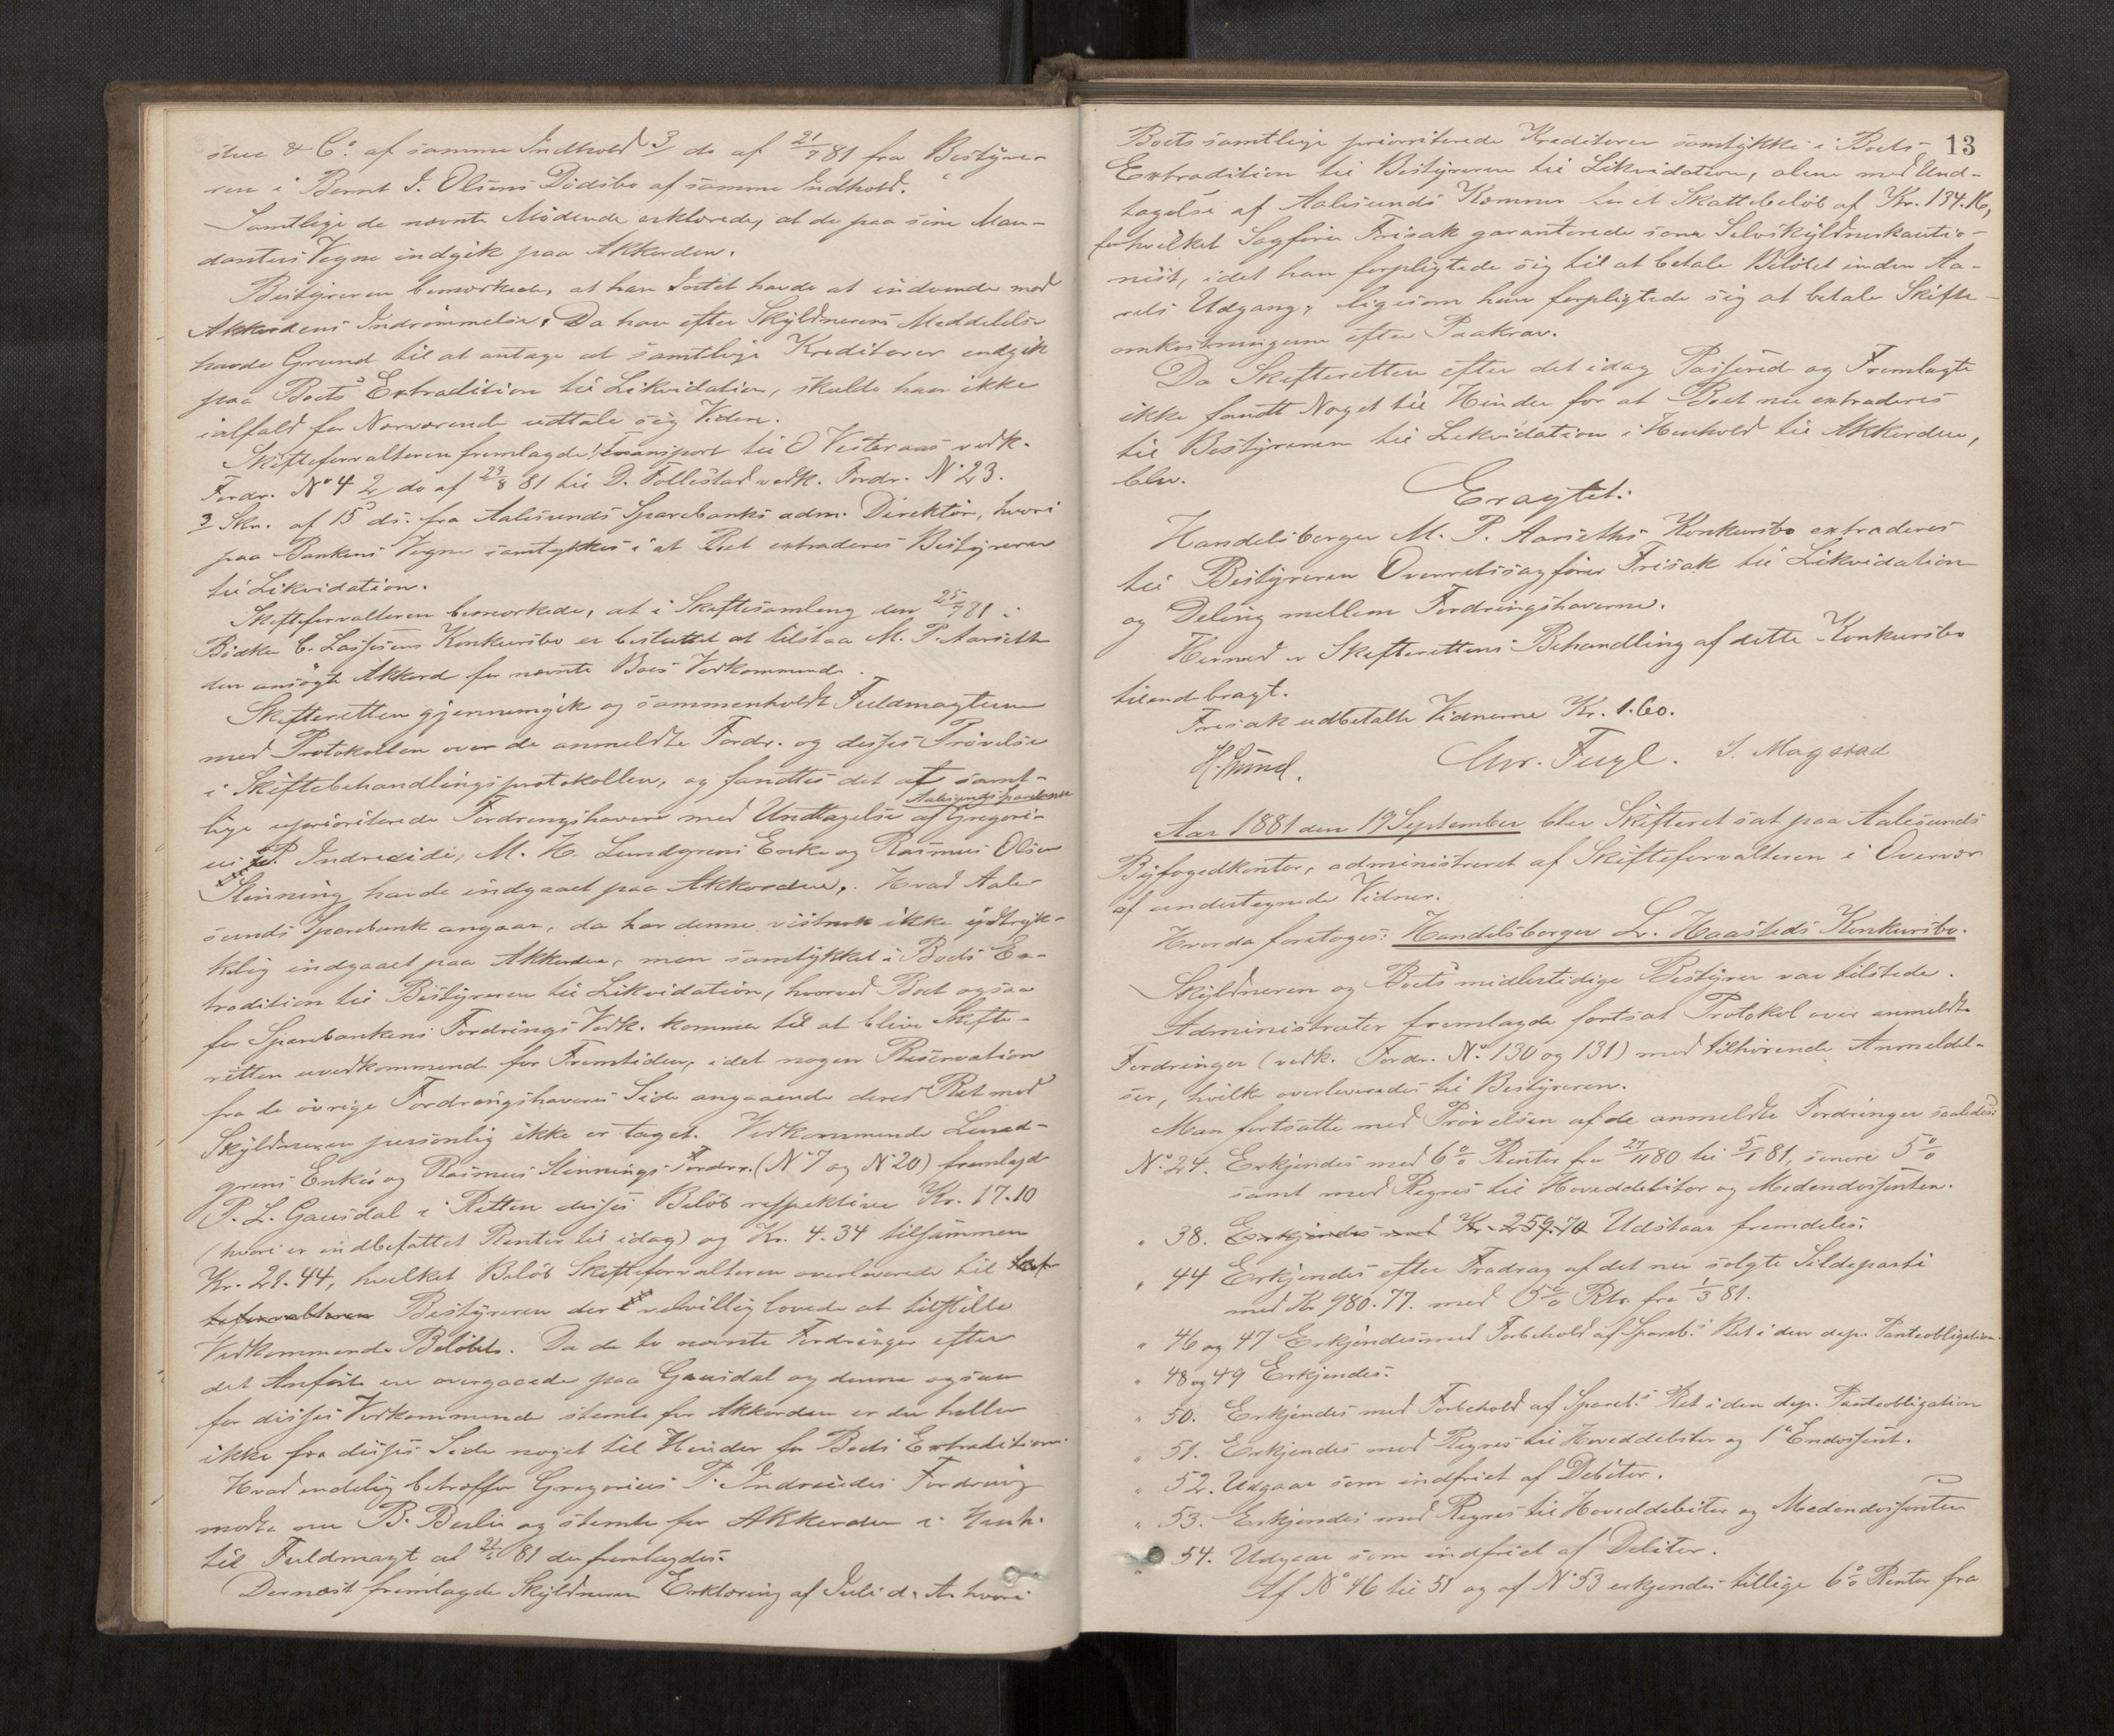 & Co. af samme Indhold 3/ do af 21/7 81 fra Bestyre-
ren i Bernt I. Olsens Dödsbo af samme Indhold.
Samtlige de nævnte Mødende erklærede, at de paa sine Man-
danters Vegne indgik paa Akkorden.
Bestyreren bemærkede, at han Intet havde at indvende mod
Akkordens Indrømmelse. Da han efter Skyldnerens Meddelelse
havde Grund til at antage at samtlige Kreditorer indgik
paa Boets Extradition til Likvidation, skulde han ikke
ialfald for Nærværende udtale sig Viden.
Skifteforvalteren fremlagde 1/ Transport til O Vesteraas vedk.
Fordr. No 4 2/ do af 29/8 81 til D. Follestad vedk. Fordr. No 23.
3/ Skr. af 15 ds. fra Aalesunds Sparebanks adm. Direktör, hvori
paa Bankens Vegne samtykkes i at Boet extraderes Bestyreren
til Likvidation.
Skifteforvalteren bemærkede, at i Skiftesamling den 25/7 81 i
Bödker C. Lassesens Konkursbo er besluttet at tilstaa M. P. Aarseth
den ansögte Akkord for nævnte Boes Vedkommende.
Skifteretten gjennemgik og sammenholdt Fuldmagterne
med Protokollen over de anmeldte Fordr. og disses Prövelse
i Skiftebehandlingsprotokollen, og fandtes det at samt-
lige uprioriterede Fordringshavere med Undtagelse af Aalesunds Sparebank Gregori-
us P. Indreeide, M. H. Lundgrens Enke og Rasmus Olsen
Slinning havde indgaaet paa Akkorden. Hvad Aale-
sunds Sparebank angaar, da har denne vistnok ikke ydtryk-
kelig indgaaet paa Akkorden, men samtykket i Boets Ex-
tradition til Bestyreren til Likvidation, hvorved Boet ogsaa
for Sparebankens Fordrings Vedk. kommer til at blive Skifte-
retten uvedkommende for Fremtiden, idet nogen Reservation
fra de övrige Fordringshaveres Side angaaende deres Ret mod
Skyldneren personlig ikke er taget. Vedkommende Lund-
grens Enkes og Rasmus Slinnings Fordr. (No 7 og No 20) fremlagde
P. L. Gausdal i Retten disses Belöb respektive Kr. 17.10
(hvori er indbefattet Renter til idag) og Kr. 4.34 tilsammen
Kr. 21.44, hvilket Belöb Skifteforvalteren overleverede til Skif-
teforvalteren Bestyreren der velvillig lovede at tilstille
Vedkommende Belöbet. Da de to nævnte Fordringer efter
det Anförte ere overgaaede paa Gausdal og denne ogsaa
for disses Vedkommende stemte for Akkorden er der heller
ikke fra disses Side noget til Hinder for Boets Extradition.
Hvad endelig betræffer Gregorius P. Indreeides Fordring
mødte nu B. Berlin og stemte for Akkorden i Henh.
til Fuldmagt af 81 der fremlagdes.
Dernæst fremlagde Skyldneren Erklæring af Juli d. A. hvori
13
Boets samtlige prioriterede Kreditorer samtykke i Boets
Extradition til Bestyreren til Likvidation, alene med Und-
tagelse af Aalesunds Kæmner for et Skattebelöb af Kr. 134.16,
for hvilket Sagförer Frisak garanterede som Selvskyldnerkautio-
nist, idet han forpligtede sig til at betale Belöbet inden Aa-
rets Udgang, ligesom han forpligtede sig at betale Skifte-
omkostningerne efter Paakrav.
Da Skifteretten efter det idag Passerede og Fremlagte
ikke fandt Noget til Hinder for at Boet nu extraderes
til Bestyreren til Likvidation i Henhold til Akkorden,
blev.
Eragtet:
Handelsborger M. P. Aarseths Konkursbo extraderes
til Bestyreren Overretssagförer Frisak til Likvidation
og Deling mellem Fordringshaverne.
Hermed er Skifterettens Behandling af dette Konkursbo
tilendebragt.
Frisak udbetalte Vidnerne Kr. 1.60.
Chr. Fugl. I. Magstad
Aar 1881 den 19 September blev Skifteret sat paa Aalesunds
Byfogedkontor, administreret af Skifteforvalteren i Overvær
af undertegnede Vidner.
Hvorda foretoges: Handelsborger L. Haasteds Konkursbo.
Skyldneren og Boets midlertidige Bestyrer var tilstede.
Administrator fremlagde fortsat Protokol over anmeldte
Fordringer (vedk. Fordr. No. 130 og 131) med tilhörende Anmeldel-
ser, hvilke overleveredes til Bestyreren.
Man fortsatte med Prövelsen af de anmeldte Fordringer saaledes:
No. 24. Erkjendes med 6 % Renter fra 27/11 80 til 5/1 81, senere 5 %
samt med Regres til Hoveddebitor og Medendossenten.
" 38. Erkjendes med Kr. 259.70 Udstaar fremdeles.
" 44 Erkjendes efter Fradrag af det nu solgte Sildeparti
med Kr. 980.77. med 5 % Rtr. fra 1/3 81.
" 46 og 47 Erkjendes med Forbehold af Spareb.s Ret i den dep. Panteobligation.
" 48 og 49 Erkjendes.
" 50. Erkjendes med Forbehold af Spareb.s Ret i den dep. Panteobligation
" 51. Erkjendes med Regres til Hoveddebitor og 1ste Endossent.
" 52. Udgaar som indfriet af Debitor.
" 53. Erkjendes med Regres til Hoveddebitor og Medendossenten
" 54. Udgaar som indfriet af Debitor.
Af No 46 til 51 og af No 53 erkjendes tillige 6 % Renter fra